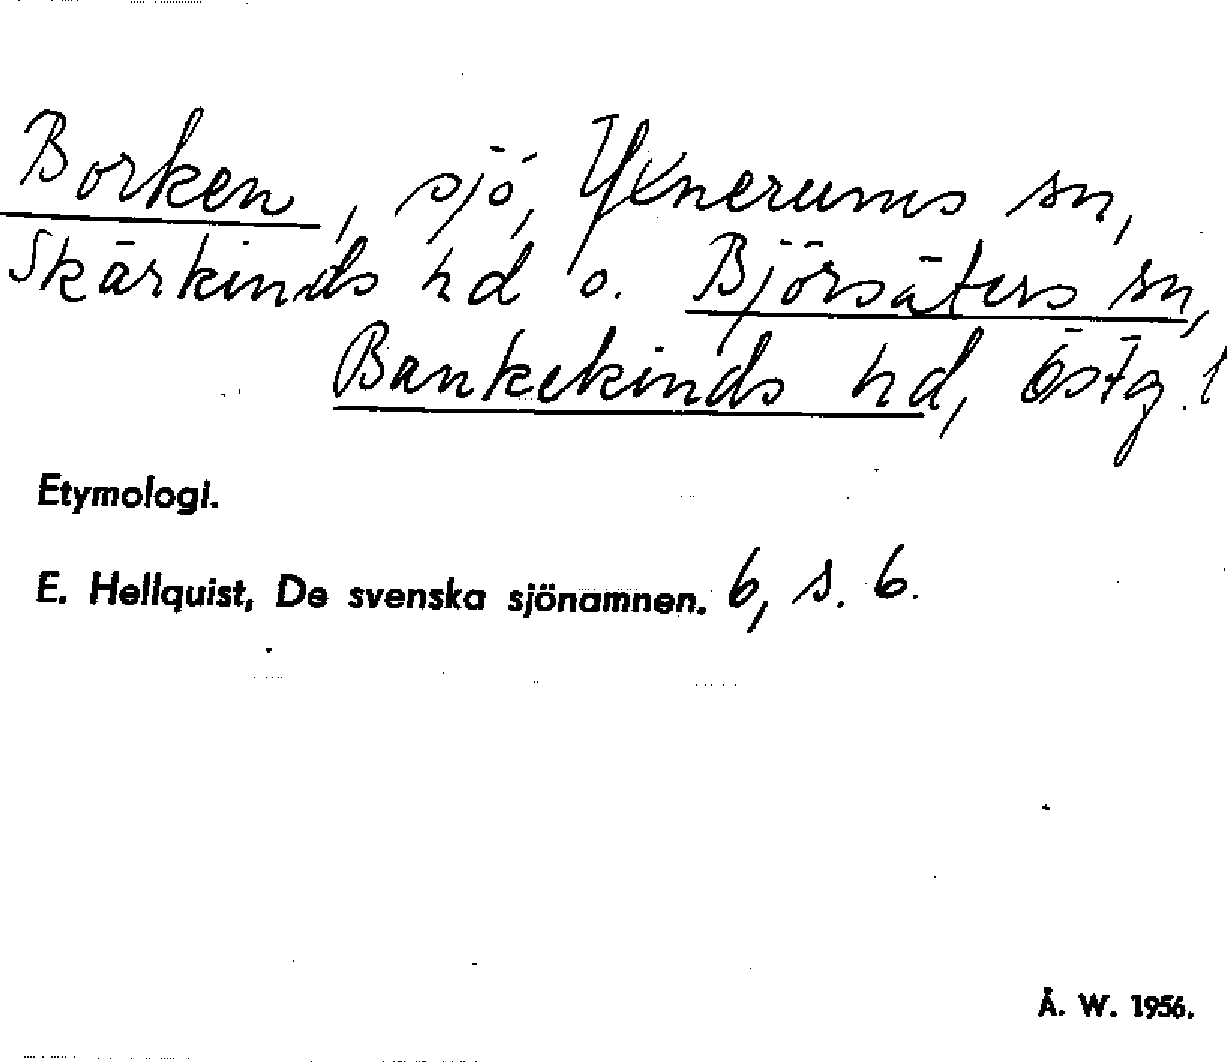 Borken, sjö, Yxnerums sn,
Skärkinds hd o. Björsäters sn,
Bankekinds hd, Östg. l
Etymologi.
E. Hellquist, De svenska sjönamnen. 6, s. 6.
Å. W. 1956.